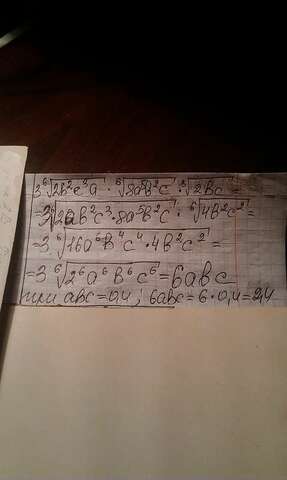 3⁶√2b²c³a · ⁶√8a⁵b²c · ³√2bc =
= 3⁶√2ab²c³ · 8a⁵b²c · ⁶√4b²c² =
= 3 ⁶√16a⁶b⁴c⁴ · 4b²c² =
= 3 ⁶√2⁶a⁶b⁶c⁶ = 6abc
при abc = 0,4; 6abc = 6 · 0,4 = 2,4